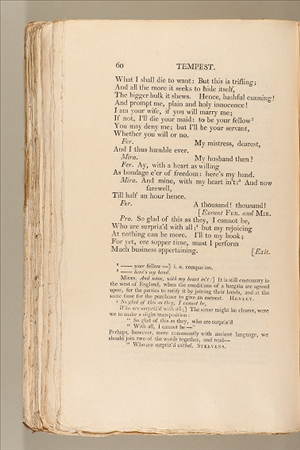 60 TEMPEST.
What I shall die to want: But this is trifling;
And all the more it seeks to hide itself,
The bigger bulk it shews. Hence, bashful cunning!
And prompt me, plain and holy innocence!
I am your wife, if you will marry me;
If not, I'll die your maid: to be your fellow²
You may deny me; but I'll be your servant,
Whether you will or no.
Fer. My mistress, dearest,
And I thus humble ever.
Mira. My husband then?
Fer. Ay, with a heart as willing
As bondage e'er of freedom: here's my hand.
Mira. And mine, with my heart in't:³ And now
farewell,
Till half an hour hence.
Fer. A thousand! thousand!
[Exeunt FER. and MIR.
Pro. So glad of this as they, I cannot be,
Who are surpris'd with all;⁴ but my rejoicing
At nothing can be more. I'll to my book;
For yet, ere supper time, must I perform
Much business appertaining. [Exit.
² —— your fellow —] i. e. companion.
³ —— here's my hand.
MIRA. And mine, with my heart in't:] It is still customary in
the west of England, when the conditions of a bargain are agreed
upon, for the parties to ratify it by joining their hands, and at the
same time for the purchaser to give an earnest. HENLEY.
⁴ So glad of this as they, I cannot be,
Who are surpriz'd with all;] The sense might be clearer, were
we to make a slight transposition:
" So glad of this as they, who are surpriz'd
" With all, I cannot be—"
Perhaps, however, more consonantly with ancient language, we
should join two of the words together, and read—
" Who are surpriz'd withal. STEEVENS.